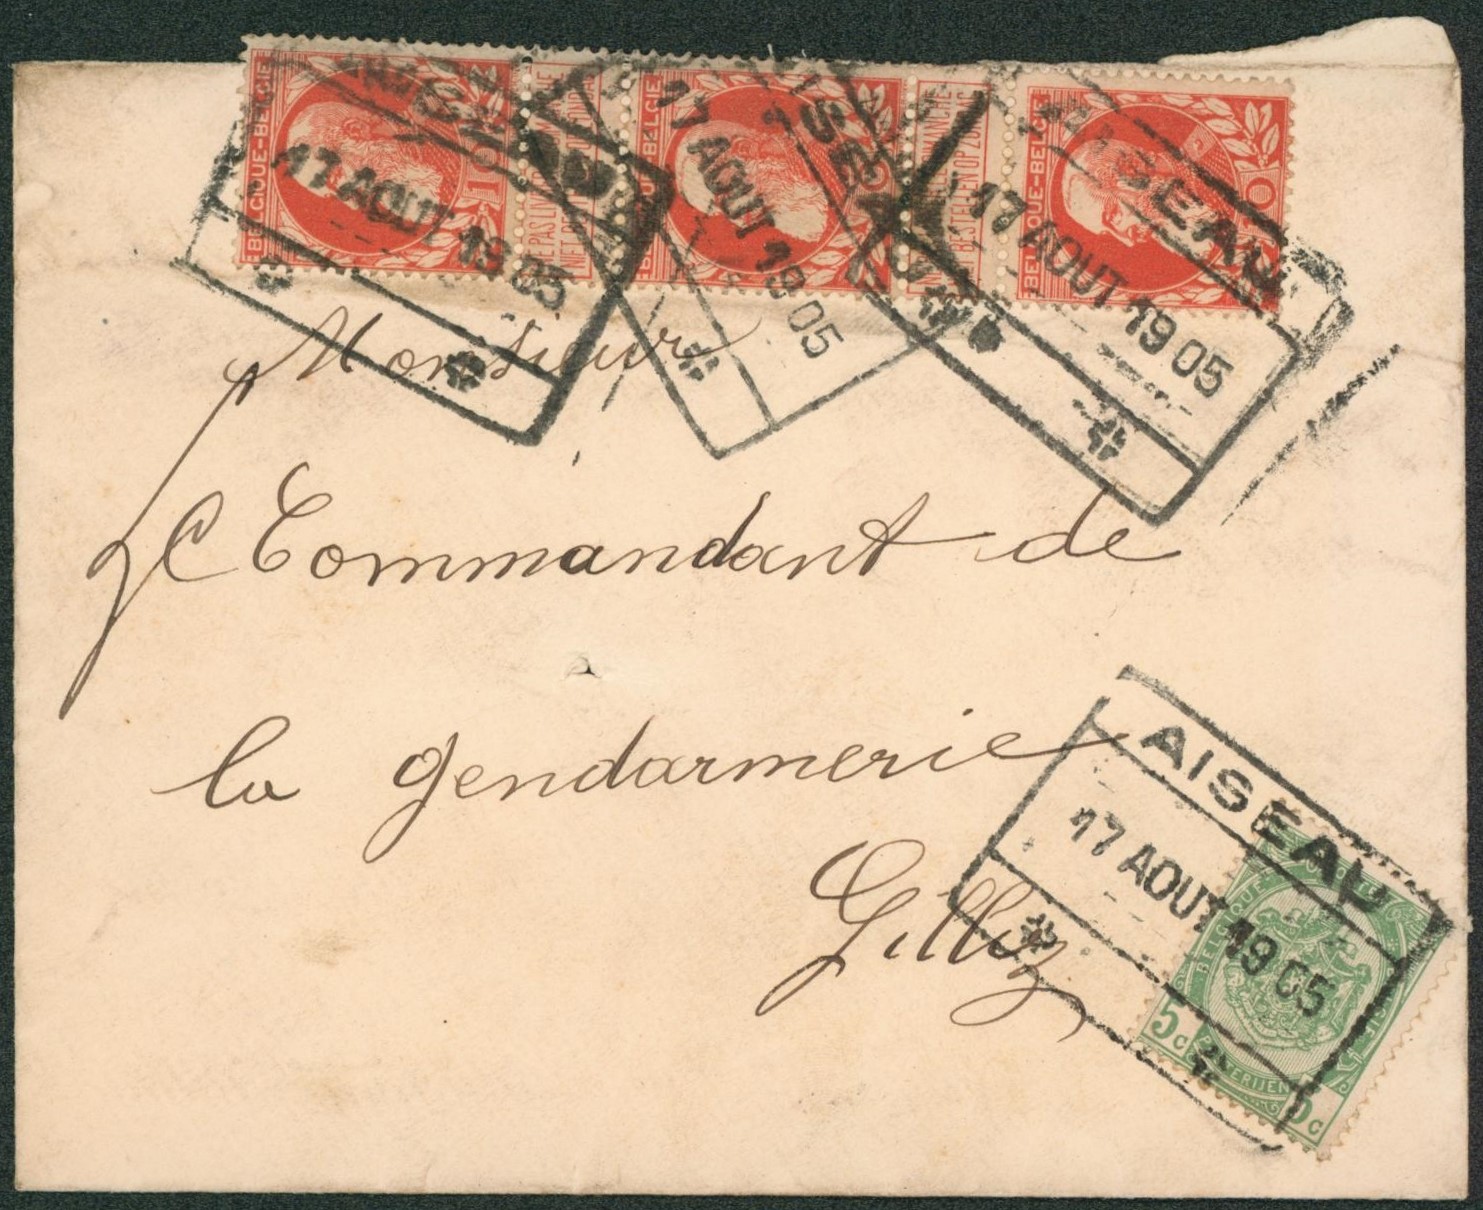 BELGIQUE-BELGIË
17 AOUT 1905
BELGIË
17 AOUT 1905
AISEAU
17 AOUT 1905
Monsieur
le Commandant de
la gendarmerie
Gilly
AISEAU
17 AOUT 1905
BELGIQUE
5c
5c